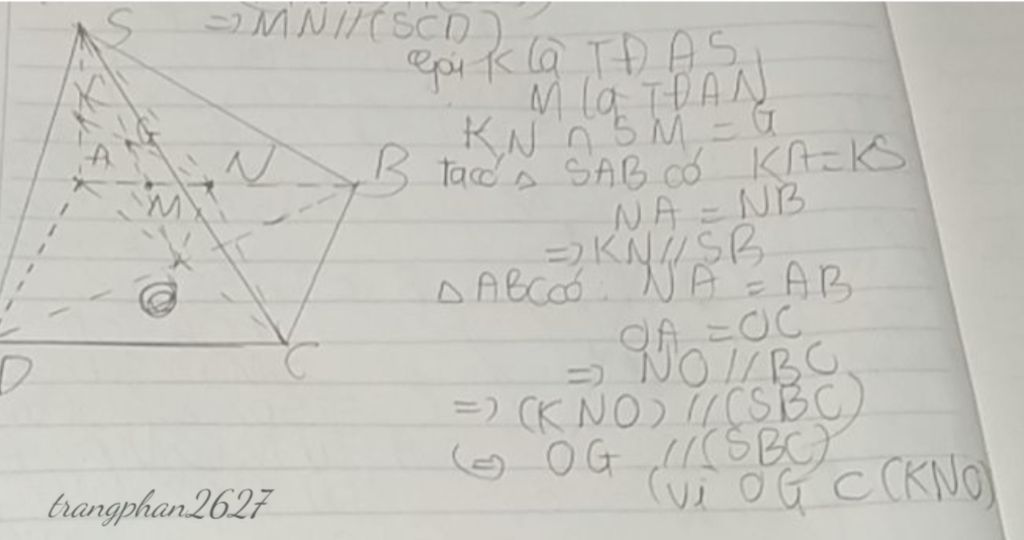 S
=> MN // (SCD)
gọi K là TĐ AS
M là TĐ AN
K
KN ∩ SM = G
G
A
N
B
ta có △ SAB có KA = KS
M
NA = NB
=> KN // SB
△ ABC có: NA = AB
O
OA = OC
D
C
=> NO // BC
=> (KNO) // (SBC)
<=> OG // (SBC)
(Vì OG ⊂ (KNO)
trangphan2627